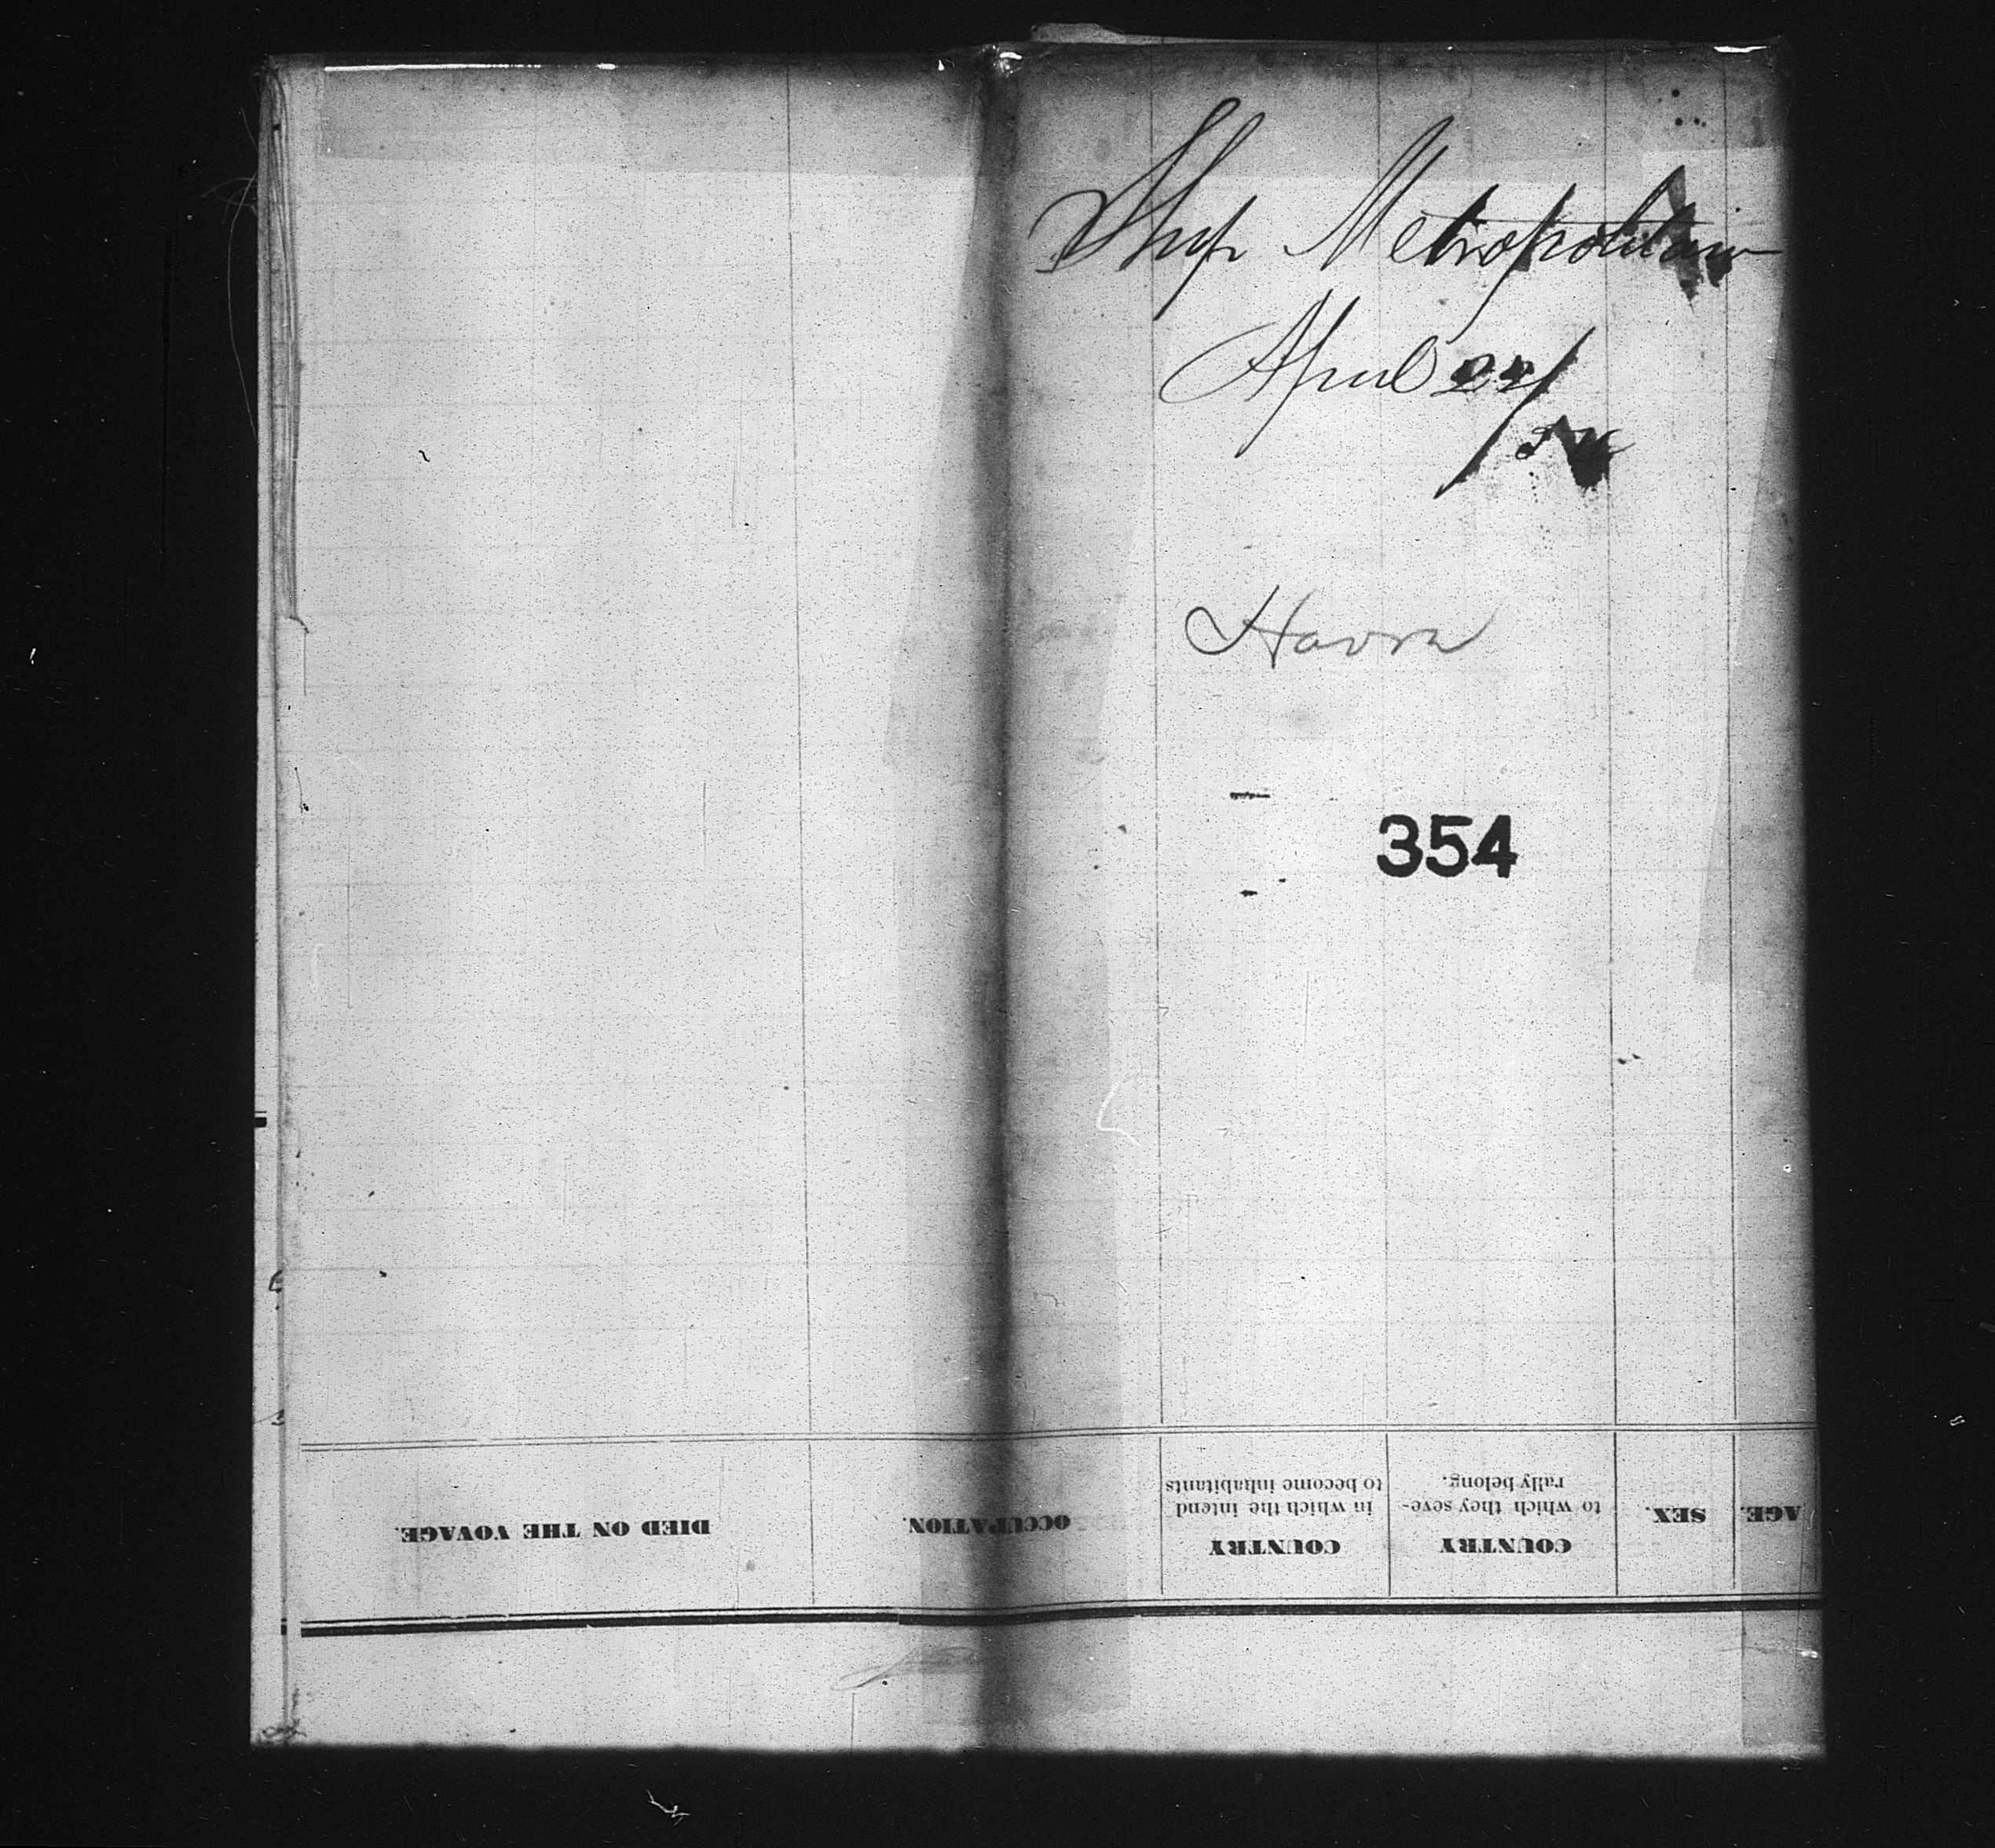 Ship Metropolitan
April 24/
54
Havre
354
AGE.
SEX.
COUNTRY
to which they seve-
rally belong.
COUNTRY
in which the intend
to become inhabitants
OCCUPATION.
DIED ON THE VOYAGE.